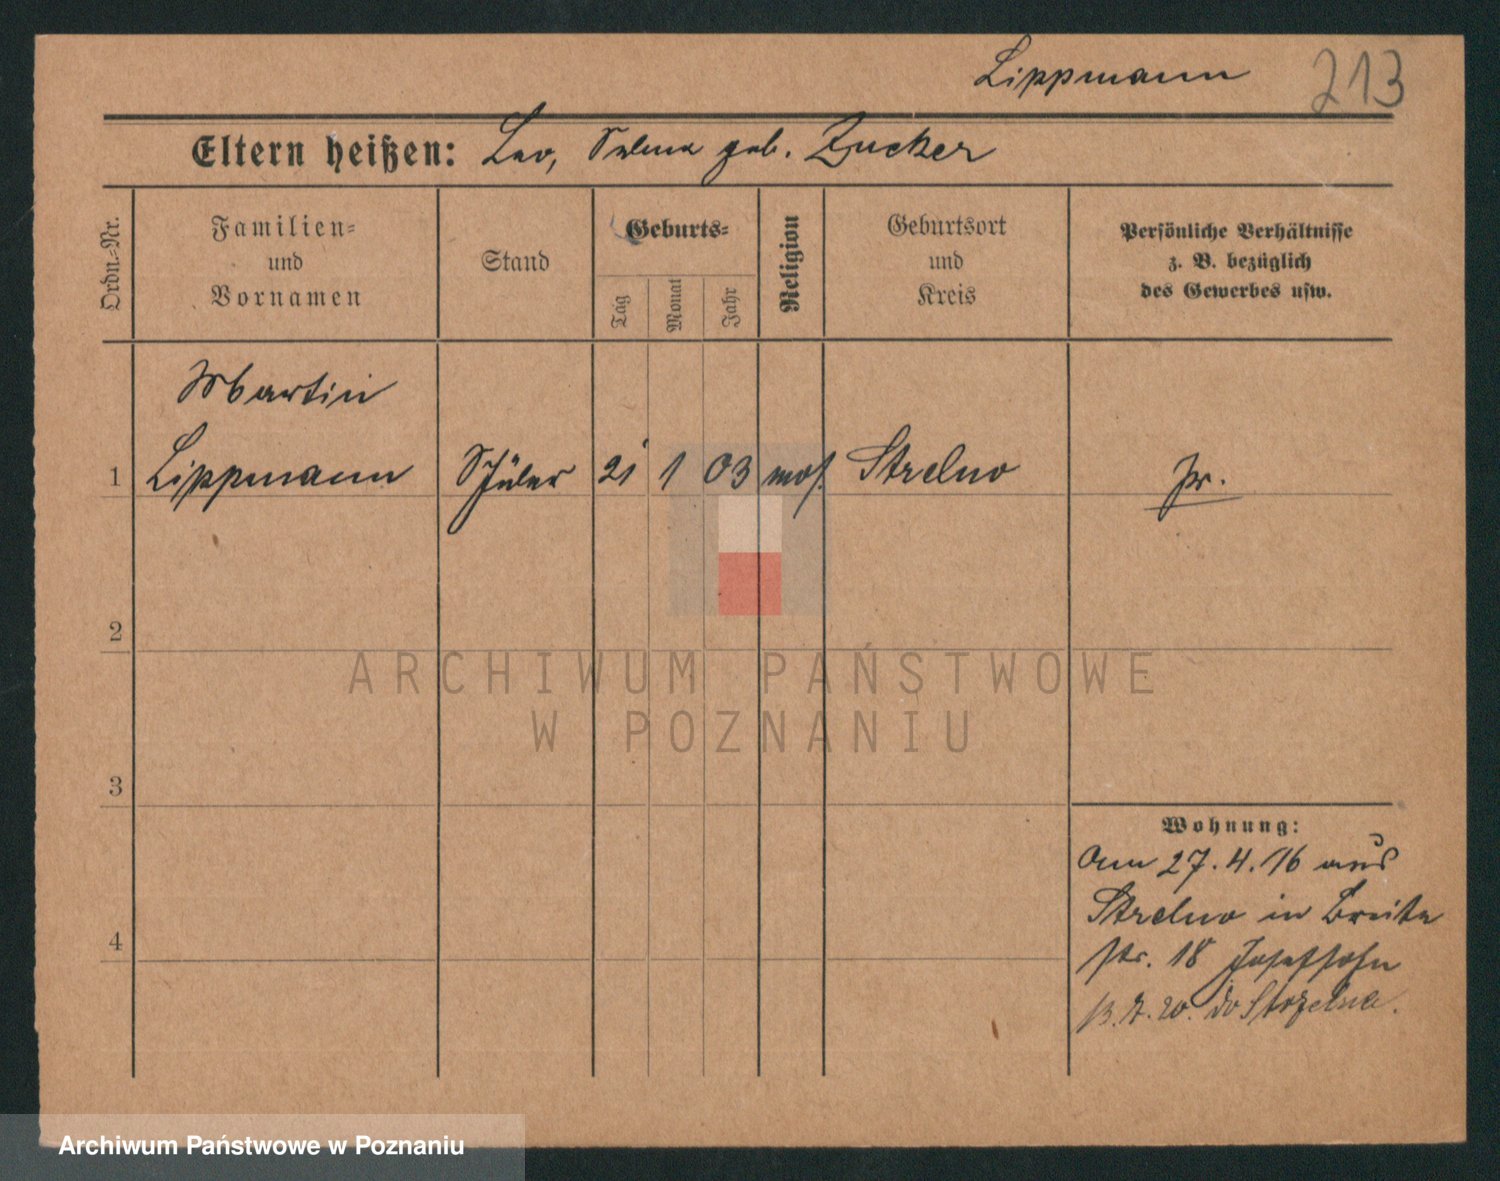 Lippmann 213
Eltern heißen: Leo, Selma geb. Zucker
Ordn.=Nr.
Familien=
und
Vornamen
Stand
Geburts=
Tag
Monat
Jahr
Religion
Geburtsort
und
Kreis
Persönliche Verhältnisse
z. B. bezüglich
des Gewerbes usw.
Martin
1 Lippmann Schüler 21 1 03 mos. Strelno pr.
2
3
4
Wohnung:
Am 27.4.16 aus
Strelno in Breite
str. 18 Josefsohn
13.7.20. do Strzelna.
ARCHIWUM PAŃSTWOWE
W POZNANIU
Archiwum Państwowe w Poznaniu